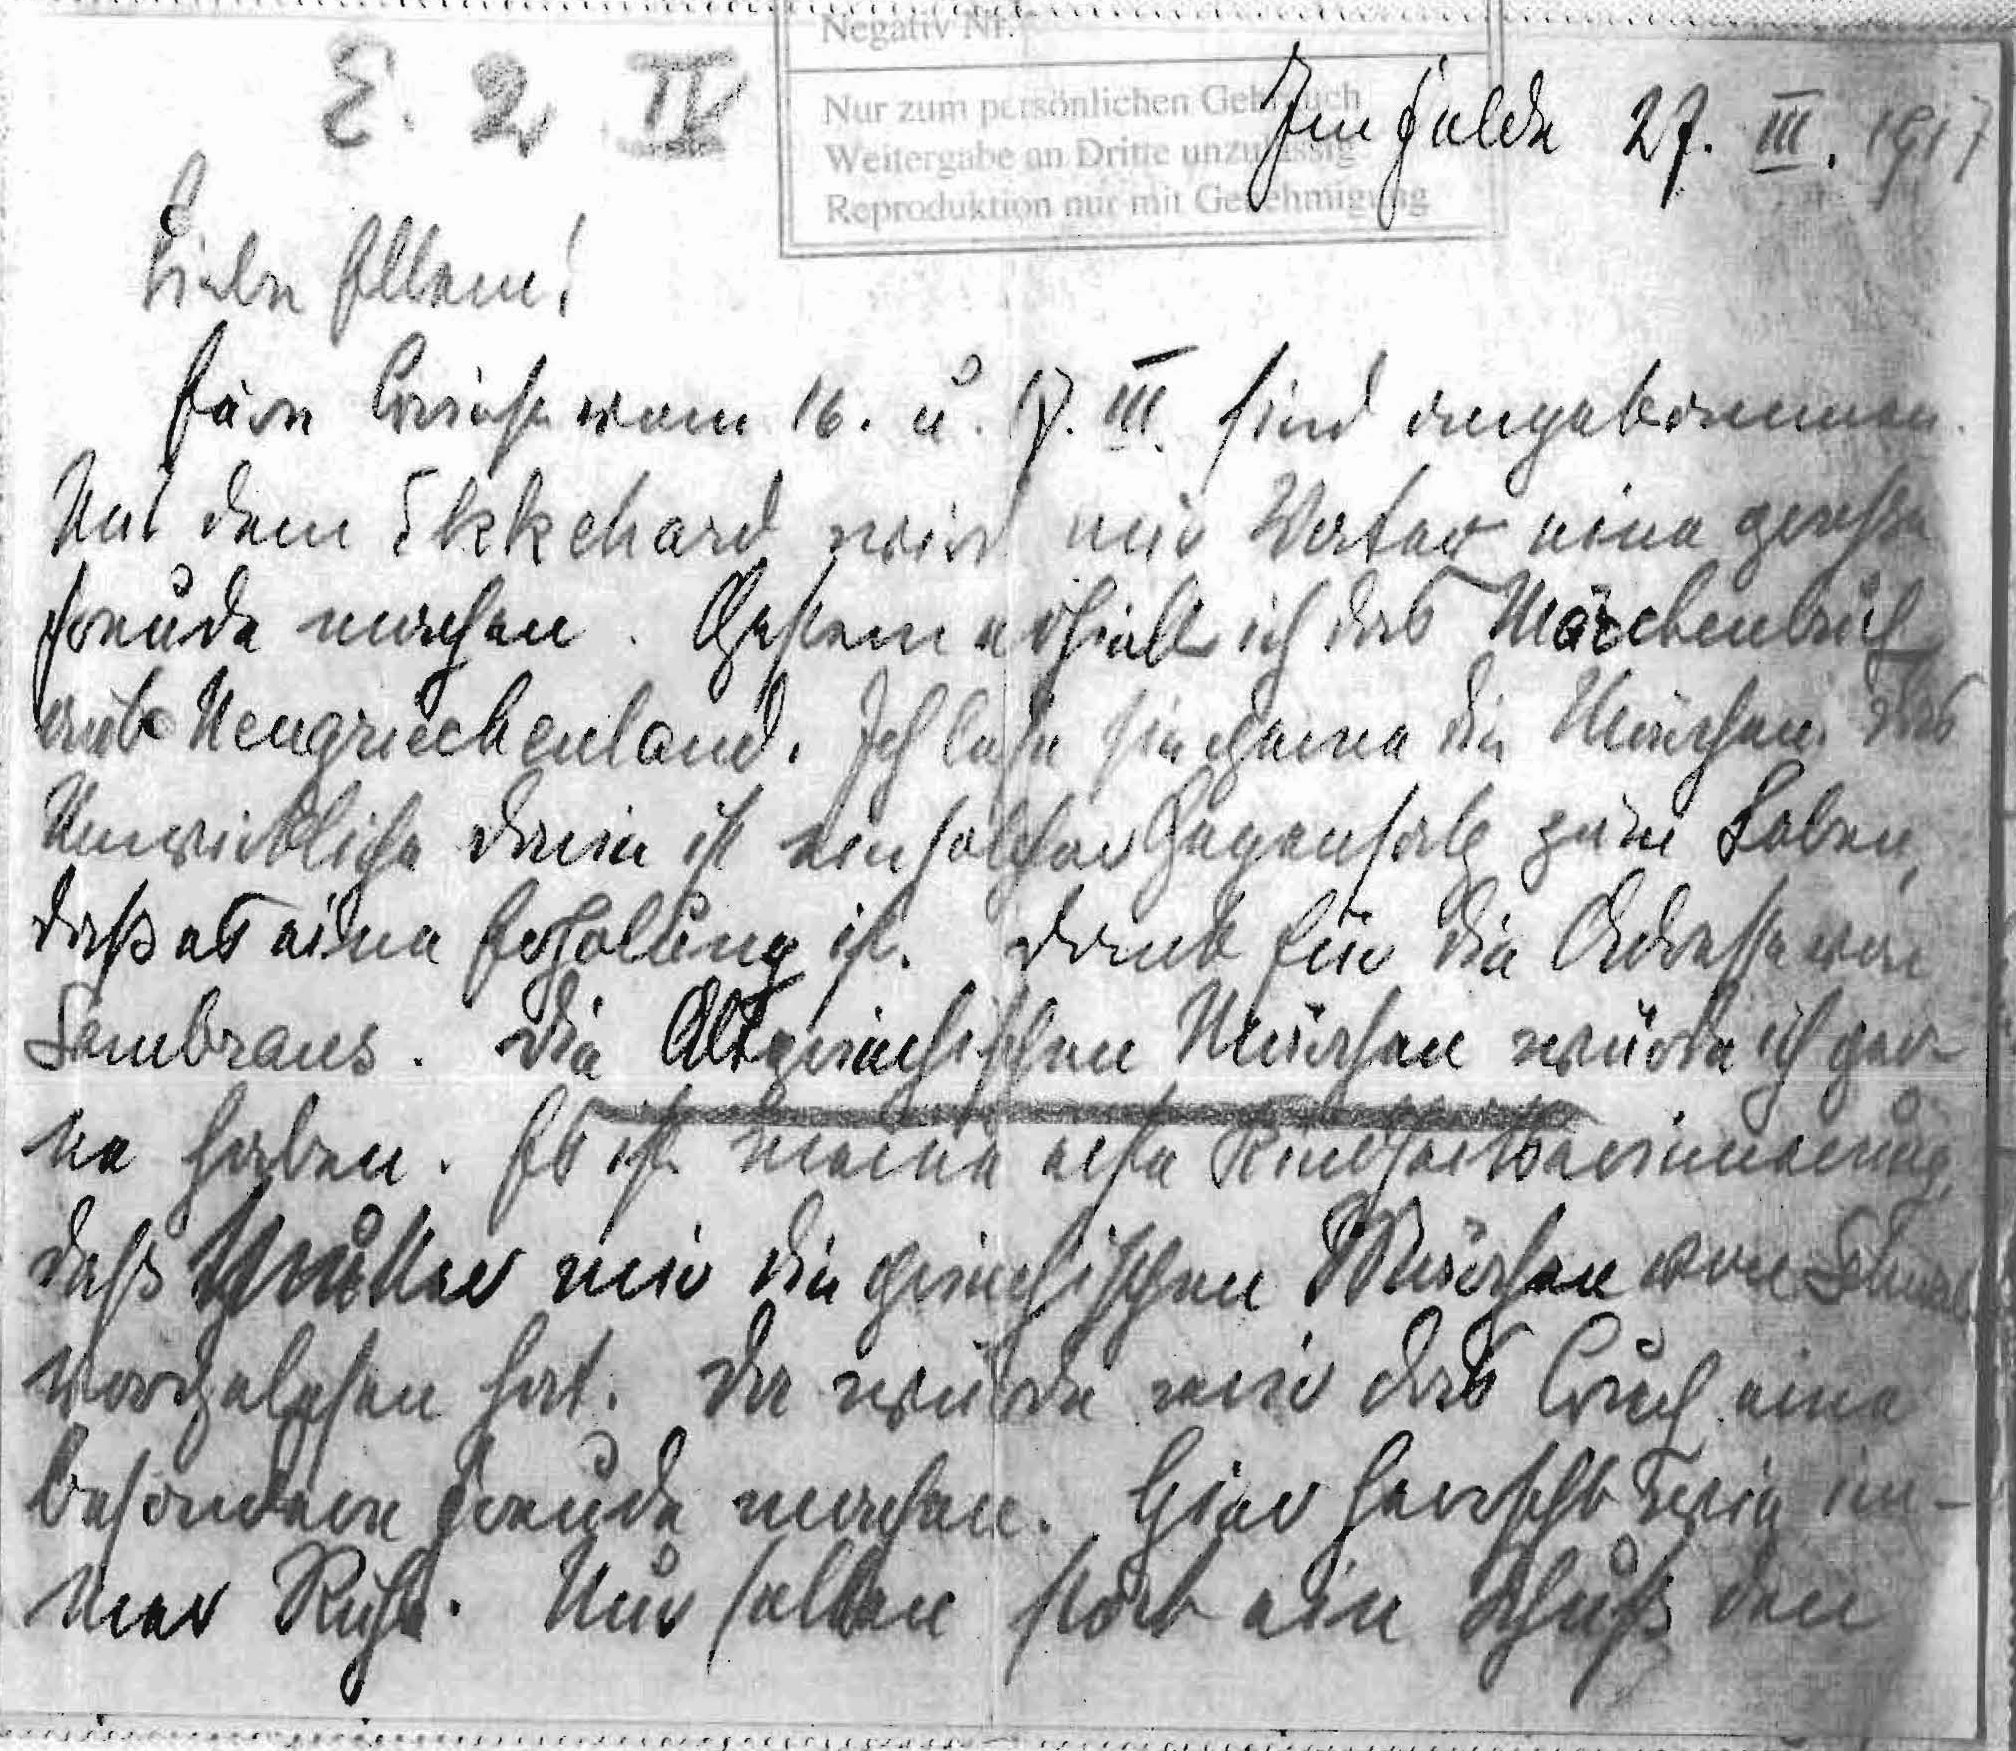 Negativ Nr.
E. 2 IV
Nur zum persönlichen Gebrauch
Weitergabe an Dritte unzulässig
Reproduktion nur mit Genehmigung
Im Felde 27. III. 1917
Liebe Eltern!
Eure Briefe vom 16. u. 17. III. sind angekommen.
Mit dem Ekkehard wird mir Vater eine große
Freude machen. Gestern erhielt ich das Märchenbuch
aus Neugriechenland. Ich lese sie gerne die Märchen. Das
Unwirkliche darin ist ein solcher Gegensatz zum Leben,
daß es eine Erholung ist. Dank für die Adresse von
Sembraus. Die Altgriechischen Märchen würde ich ger-
ne haben. Es ist meine erste Kindheitserinnerung,
daß Mutter mir die griechischen Märchen von Schwab
vorgelesen hat. Da würde mir das Buch eine
besondere Freude machen. Hier herrscht wie im-
mer Ruhe. Nur selten stört ein Schuß den